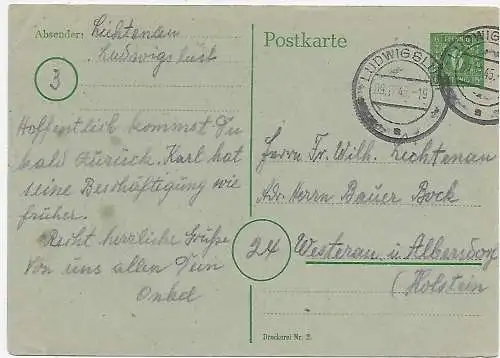 Absender: Lichtenau
Ludwigslust
3
Hoffentlich kommst Du
bald zurück. Karl hat
seine Beschäftigung wie
früher.
Recht herzliche Grüße
Von uns allen Dein
Onkel
Postkarte
LUDWIGSLUST
LUDWIGSLUST
Herrn Fr. Wilh. Lichtenau
Adr. Herrn Bauer Bock
24 Westerau ü. Albersdorf
(Holstein
Druckerei Nr. 2.